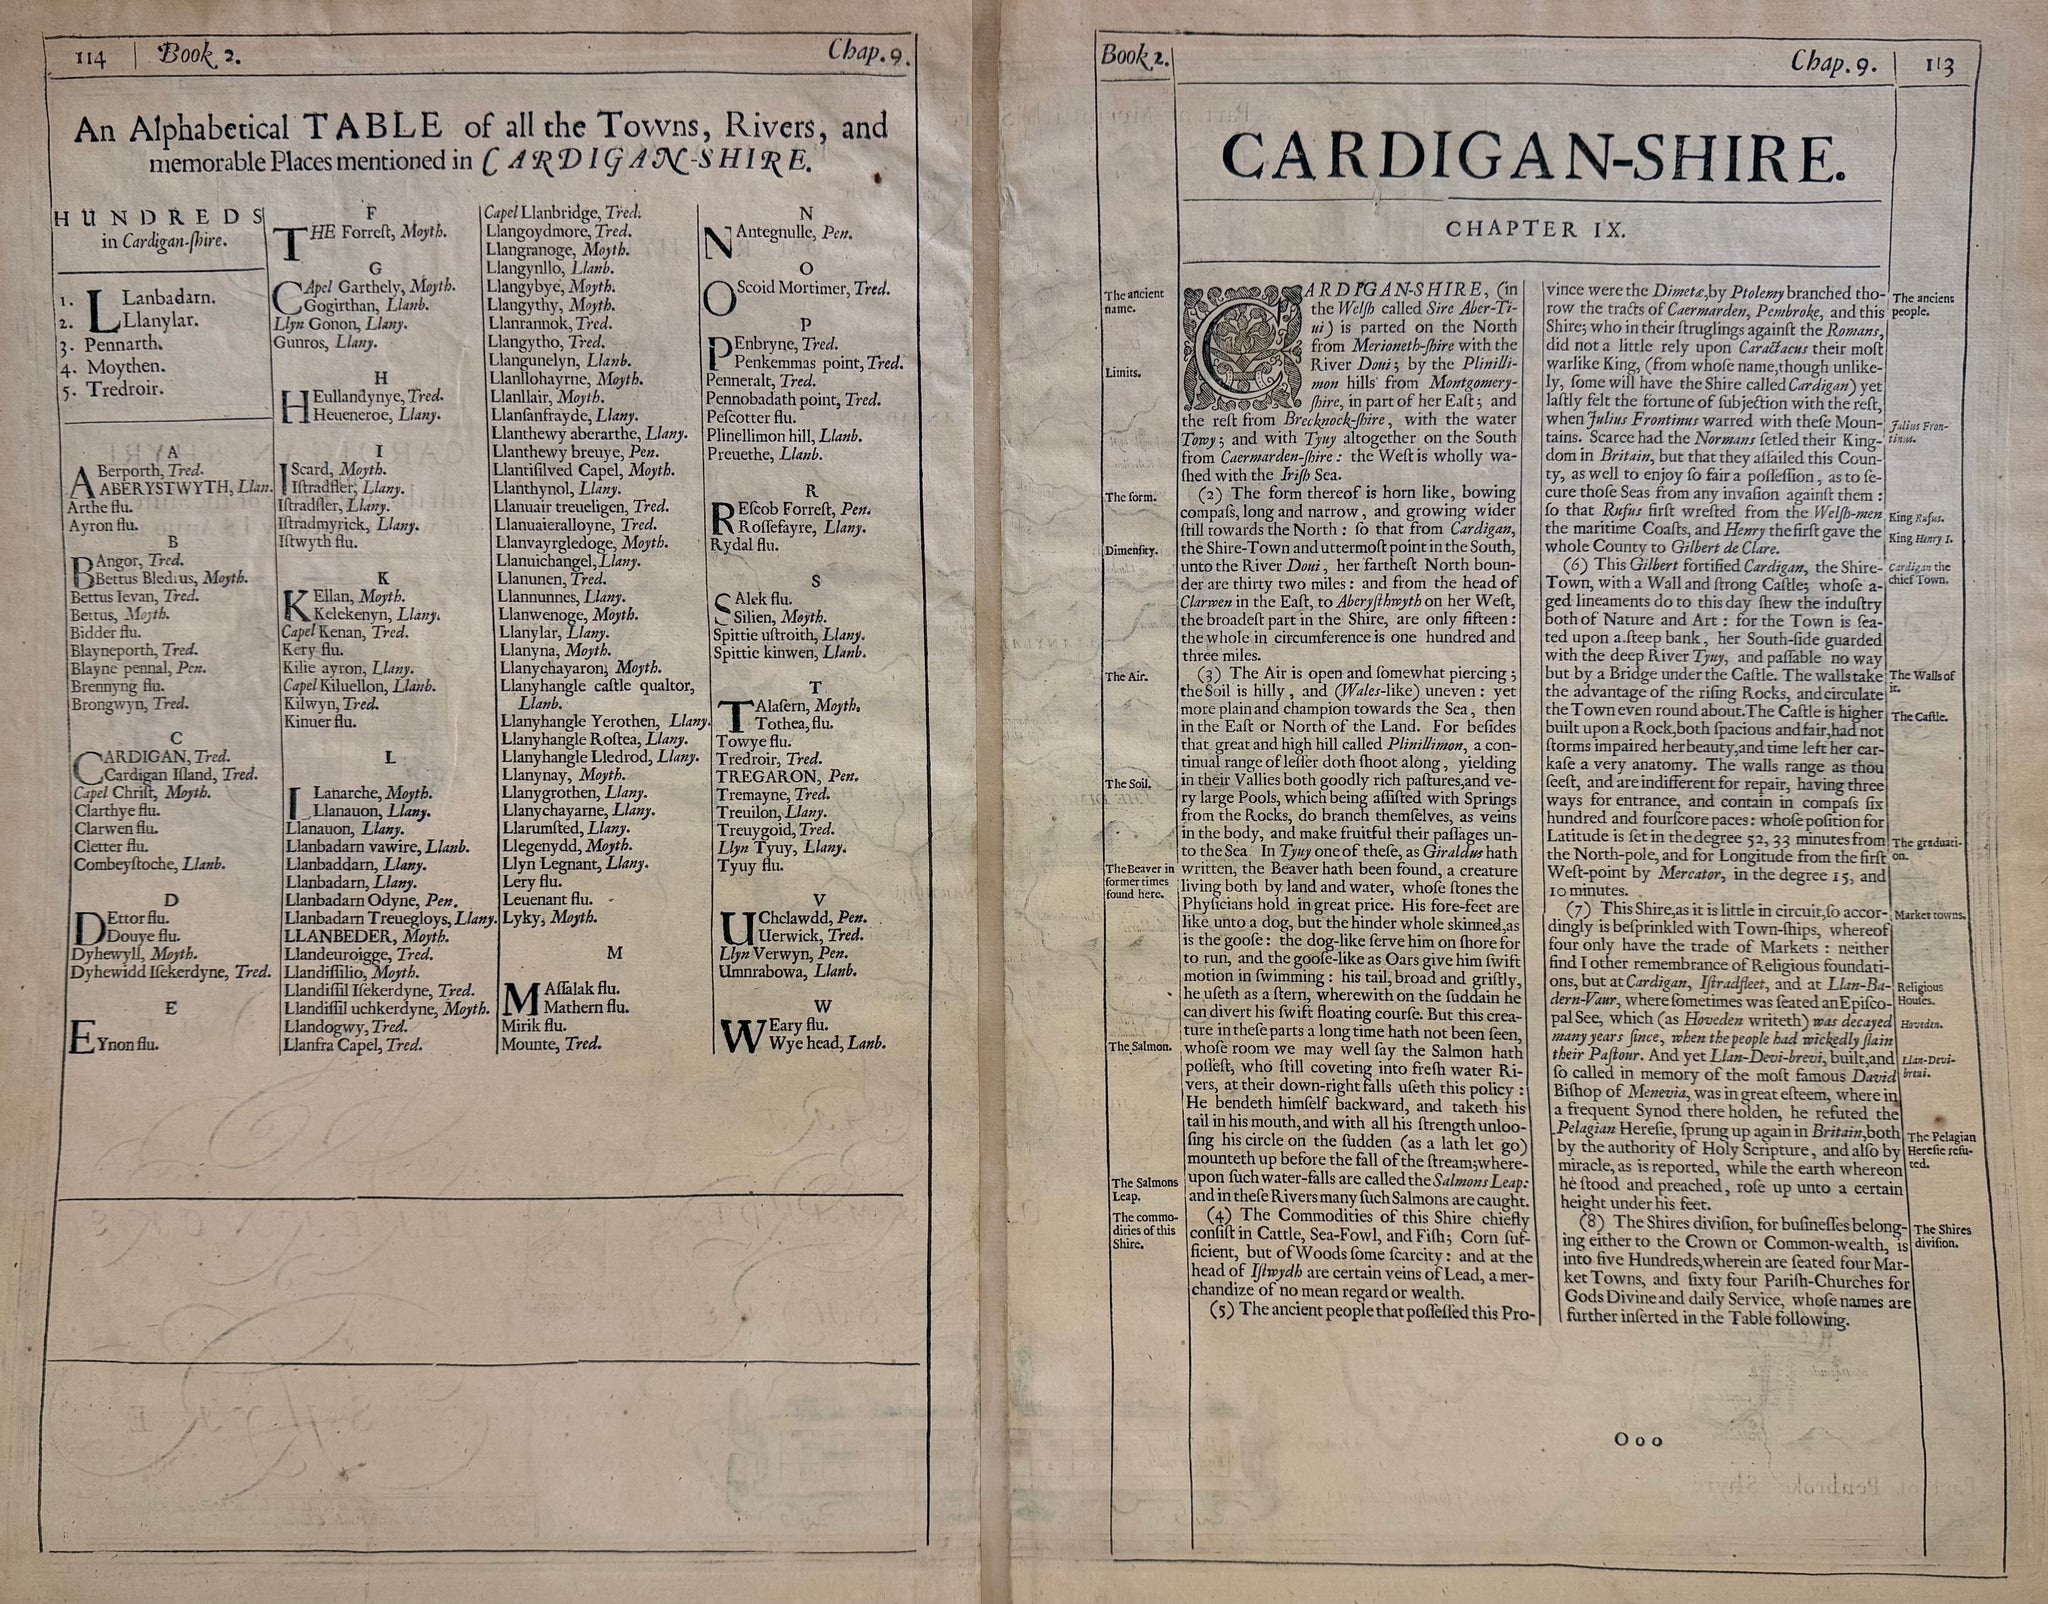 114 | Book 2. Chap. 9.
An Alphabetical TABLE of all the Towns, Rivers, and
memorable Places mentioned in CARDIGAN-SHIRE.
HUNDREDS
in Cardigan-ſhire.
1. LLanbadarn.
2. LLlanylar.
3. Pennarth.
4. Moythen.
5. Tredroir.
A
ABerporth, Tred.
ABERYSTWYTH, Llan.
Arthe flu.
Ayron flu.
B
BAngor, Tred.
Bettus Bledius, Moyth.
Bettus Ievan, Tred.
Bettus, Moyth.
Bidder flu.
Blayneporth, Tred.
Blayne pennal, Pen.
Brennyng flu.
Brongwyn, Tred.
C
CARDIGAN, Tred.
Cardigan Iſland, Tred.
Capel Chriſt, Moyth.
Clarthye flu.
Clarwen flu.
Cletter flu.
Combeyſtoche, Llanb.
D
DEttor flu.
Douye flu.
Dyhewyll, Moyth.
Dyhewidd Iſekerdyne, Tred.
E
EYnon flu.
F
THE Forreſt, Moyth.
G
CApel Garthely, Moyth.
Gogirthan, Llanb.
Llyn Gonon, Llany.
Gunros, Llany.
H
HEullandynye, Tred.
Heueneroe, Llany.
I
IScard, Moyth.
Iſtradfler, Llany.
Iſtradſler, Llany.
Iſtradmyrick, Llany.
Iſtwyth flu.
K
KEllan, Moyth.
Kelekenyn, Llany.
Capel Kenan, Tred.
Kery flu.
Kilie ayron, Llany.
Capel Kiluellon, Llanb.
Kilwyn, Tred.
Kinuer flu.
L
LLanarche, Moyth.
Llanauon, Llany.
Llanauon, Llany.
Llanbadarn vawire, Llanb.
Llanbaddarn, Llany.
Llanbadarn, Llany.
Llanbadarn Odyne, Pen.
Llanbadarn Treuegloys, Llany.
LLANBEDER, Moyth.
Llandeuroigge, Tred.
Llandiſſilio, Moyth.
Llandiſſil Iſekerdyne, Tred.
Llandiſſil uchkerdyne, Moyth.
Llandogwy, Tred.
Llanfra Capel, Tred.
Capel Llanbridge, Tred.
Llangoydmore, Tred.
Llangranoge, Moyth.
Llangynllo, Llanb.
Llangybye, Moyth.
Llangythy, Moyth.
Llanrannok, Tred.
Llangytho, Tred.
Llangunelyn, Llanb.
Llanllohayrne, Moyth.
Llanllair, Moyth.
Llanſanfrayde, Llany.
Llanthewy aberarthe, Llany.
Llanthewy breuye, Pen.
Llantiſilved Capel, Moyth.
Llanthynol, Llany.
Llanuair treueligen, Tred.
Llanuaieralloyne, Tred.
Llanvayrgledoge, Moyth.
Llanuichangel, Llany.
Llanunen, Tred.
Llannunnes, Llany.
Llanwenoge, Moyth.
Llanylar, Llany.
Llanyna, Moyth.
Llanychayaron, Moyth.
Llanyhangle caſtle qualtor,
Llanb.
Llanyhangle Yerothen, Llany.
Llanyhangle Roſtea, Llany.
Llanyhangle Lledrod, Llany.
Llanynay, Moyth.
Llanygrothen, Llany.
Llanychayarne, Llany.
Llarumſted, Llany.
Llegenydd, Moyth.
Llyn Legnant, Llany.
Lery flu.
Leuenant flu.
Lyky, Moyth.
M
MAſſalak flu.
Mathern flu.
Mirik flu.
Mounte, Tred.
N
NAntegnulle, Pen.
O
OScoid Mortimer, Tred.
P
PEnbryne, Tred.
Penkemmas point, Tred.
Penneralt, Tred.
Pennobadath point, Tred.
Peſcotter flu.
Plinellimon hill, Llanb.
Preuethe, Llanb.
R
REſcob Forreſt, Pen.
Roſſefayre, Llany.
Rydal flu.
S
SAlek flu.
Silien, Moyth.
Spittie uſtroith, Llany.
Spittie kinwen, Llanb.
T
TAlaſern, Moyth.
Tothea, flu.
Towye flu.
Tredroir, Tred.
TREGARON, Pen.
Tremayne, Tred.
Treuilon, Llany.
Treuygoid, Tred.
Llyn Tyuy, Llany.
Tyuy flu.
V
UChclawdd, Pen.
Uerwick, Tred.
Llyn Verwyn, Pen.
Umnrabowa, Llanb.
W
WEary flu.
Wye head, Lanb.
Book 2. Chap. 9. | 113
CARDIGAN-SHIRE.
CHAPTER IX.
The ancient
name.
Limits.
The form.
Dimenſity.
The Air.
The Soil.
The Beaver in
former times
found here.
The Salmon.
The Salmons
Leap.
The commo-
dities of this
Shire.
CARDIGAN-SHIRE, (in
the Welſh called Sire Aber-Ti-
ui) is parted on the North
from Merioneth-ſhire with the
River Doui; by the Plinilli-
mon hills from Montgomery-
ſhire, in part of her Eaſt; and
the reſt from Brecknock-ſhire, with the water
Towy; and with Tyuy altogether on the South
from Caermarden-ſhire: the Weſt is wholly wa-
ſhed with the Iriſh Sea.
(2) The form thereof is horn like, bowing
compaſs, long and narrow, and growing wider
ſtill towards the North: ſo that from Cardigan,
the Shire-Town and uttermoſt point in the South,
unto the River Doui, her fartheſt North boun-
der are thirty two miles: and from the head of
Clarwen in the Eaſt, to Aberyſthwyth on her Weſt,
the broadeſt part in the Shire, are only fifteen:
the whole in circumference is one hundred and
three miles.
(3) The Air is open and ſomewhat piercing;
the Soil is hilly, and (Wales-like) uneven: yet
more plain and champion towards the Sea, then
in the Eaſt or North of the Land. For beſides
that great and high hill called Plinillimon, a con-
tinual range of leſſer doth ſhoot along, yielding
in their Vallies both goodly rich paſtures, and ve-
ry large Pools, which being aſſiſted with Springs
from the Rocks, do branch themſelves, as veins
in the body, and make fruitful their paſſages un-
to the Sea. In Tyuy one of theſe, as Giraldus hath
written, the Beaver hath been found, a creature
living both by land and water, whoſe ſtones the
Phyſicians hold in great price. His fore-feet are
like unto a dog, but the hinder whole skinned, as
is the gooſe: the dog-like ſerve him on ſhore for
to run, and the gooſe-like as Oars give him ſwift
motion in ſwimming: his tail, broad and griſtly,
he uſeth as a ſtern, wherewith on the ſuddain he
can divert his ſwift floating courſe. But this crea-
ture in theſe parts a long time hath not been ſeen,
whoſe room we may well ſay the Salmon hath
poſſeſt, who ſtill coveting into freſh water Ri-
vers, at their down-right falls uſeth this policy:
He bendeth himſelf backward, and taketh his
tail in his mouth, and with all his ſtrength unloo-
ſing his circle on the ſudden (as a lath let go)
mounteth up before the fall of the ſtream; where-
upon ſuch water-falls are called the Salmons Leap:
and in theſe Rivers many ſuch Salmons are caught.
(4) The Commodities of this Shire chiefly
conſiſt in Cattle, Sea-Fowl, and Fiſh; Corn ſuf-
ficient, but of Woods ſome ſcarcity: and at the
head of Iſtwydh are certain veins of Lead, a mer-
chandize of no mean regard or wealth.
(5) The ancient people that poſſeſſed this Pro-
vince were the Dimetæ, by Ptolemy branched tho-
row the tracts of Caermarden, Pembroke, and this
Shire; who in their ſtruglings againſt the Romans,
did not a little rely upon Caractacus their moſt
warlike King, (from whoſe name, though unlike-
ly, ſome will have the Shire called Cardigan) yet
laſtly felt the fortune of ſubjection with the reſt,
when Julius Frontinus warred with theſe Moun-
tains. Scarce had the Normans ſetled their King-
dom in Britain, but that they aſſailed this Coun-
ty, as well to enjoy ſo fair a poſſeſſion, as to ſe-
cure thoſe Seas from any invaſion againſt them:
ſo that Rufus firſt wreſted from the Welſh-men
the maritime Coaſts, and Henry the firſt gave the
whole County to Gilbert de Clare.
(6) This Gilbert fortified Cardigan, the Shire-
Town, with a Wall and ſtrong Caſtle; whoſe a-
ged lineaments do to this day ſhew the induſtry
both of Nature and Art: for the Town is ſea-
ted upon a ſteep bank, her South-ſide guarded
with the deep River Tyuy, and paſſable no way
but by a Bridge under the Caſtle. The walls take
the advantage of the riſing Rocks, and circulate
the Town even round about. The Caſtle is higher
built upon a Rock, both ſpacious and fair, had not
ſtorms impaired her beauty, and time left her car-
kaſe a very anatomy. The walls range as thou
ſeeſt, and are indifferent for repair, having three
ways for entrance, and contain in compaſs ſix
hundred and fourſcore paces: whoſe poſition for
Latitude is ſet in the degree 52, 33 minutes from
the North-pole, and for Longitude from the firſt
Weſt-point by Mercator, in the degree 15, and
10 minutes.
(7) This Shire, as it is little in circuit, ſo accor-
dingly is beſprinkled with Town-ſhips, whereof
four only have the trade of Markets: neither
find I other remembrance of Religious foundati-
ons, but at Cardigan, Iſtradfleet, and at Llan-Ba-
dern-Vaur, where ſometimes was ſeated an Epiſco-
pal See, which (as Hoveden writeth) was decayed
many years ſince, when the people had wickedly ſlain
their Paſtour. And yet Llan-Devi-brevi, built, and
ſo called in memory of the moſt famous David
Biſhop of Menevia, was in great eſteem, where in
a frequent Synod there holden, he refuted the
Pelagian Hereſie, ſprung up again in Britain, both
by the authority of Holy Scripture, and alſo by
miracle, as is reported, while the earth whereon
he ſtood and preached, roſe up unto a certain
height under his feet.
(8) The Shires diviſion, for buſineſſes belong-
ing either to the Crown or Common-wealth, is
into five Hundreds, wherein are ſeated four Mar-
ket Towns, and ſixty four Pariſh-Churches for
Gods Divine and daily Service, whoſe names are
further inſerted in the Table following.
The ancient
people.
Julius Fron-
tinus.
King Rufus.
King Henry I.
Cardigan the
chief Town.
The Walls of
it.
The Caſtle.
The graduati-
on.
Market towns.
Religious
Houſes.
Hoveden.
Llan-Devi-
brevi.
The Pelagian
Hereſie refu-
ted.
The Shires
diviſion.
Ooo